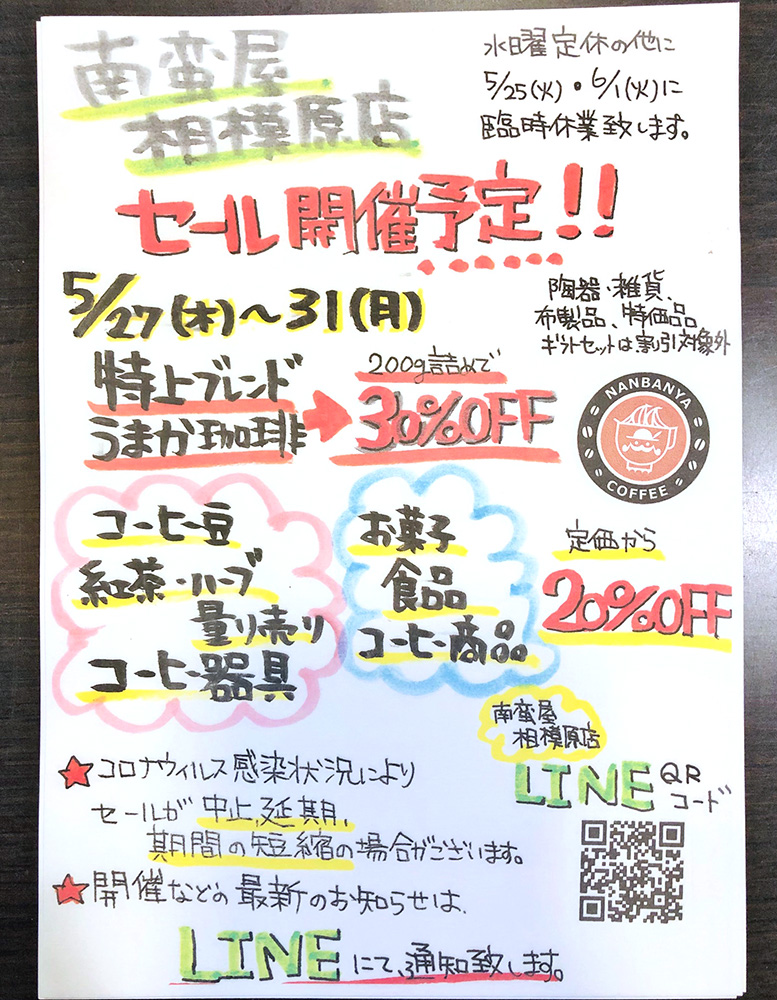 南蛮屋
相模原店
水曜定休の他に
5/25(火)・6/1(火)に
臨時休業致します。
セール開催予定!!
5/27(木)～31(月)
陶器・雑貨、
布製品、特価品
ギフトセットは割引対象外
特上ブレンド
うまか珈琲
200g詰めで
30%OFF
NANBANYA
COFFEE
コーヒー豆
紅茶・ハーブ
量り売り
コーヒー器具
お菓子
食品
コーヒー商品
定価から
20%OFF
南蛮屋
相模原店
LINE QR
コード
★コロナウィルス感染状況により
セールが中止、延期、
期間の短縮の場合がございます。
★開催などの最新のお知らせは、
LINEにて、通知致します。